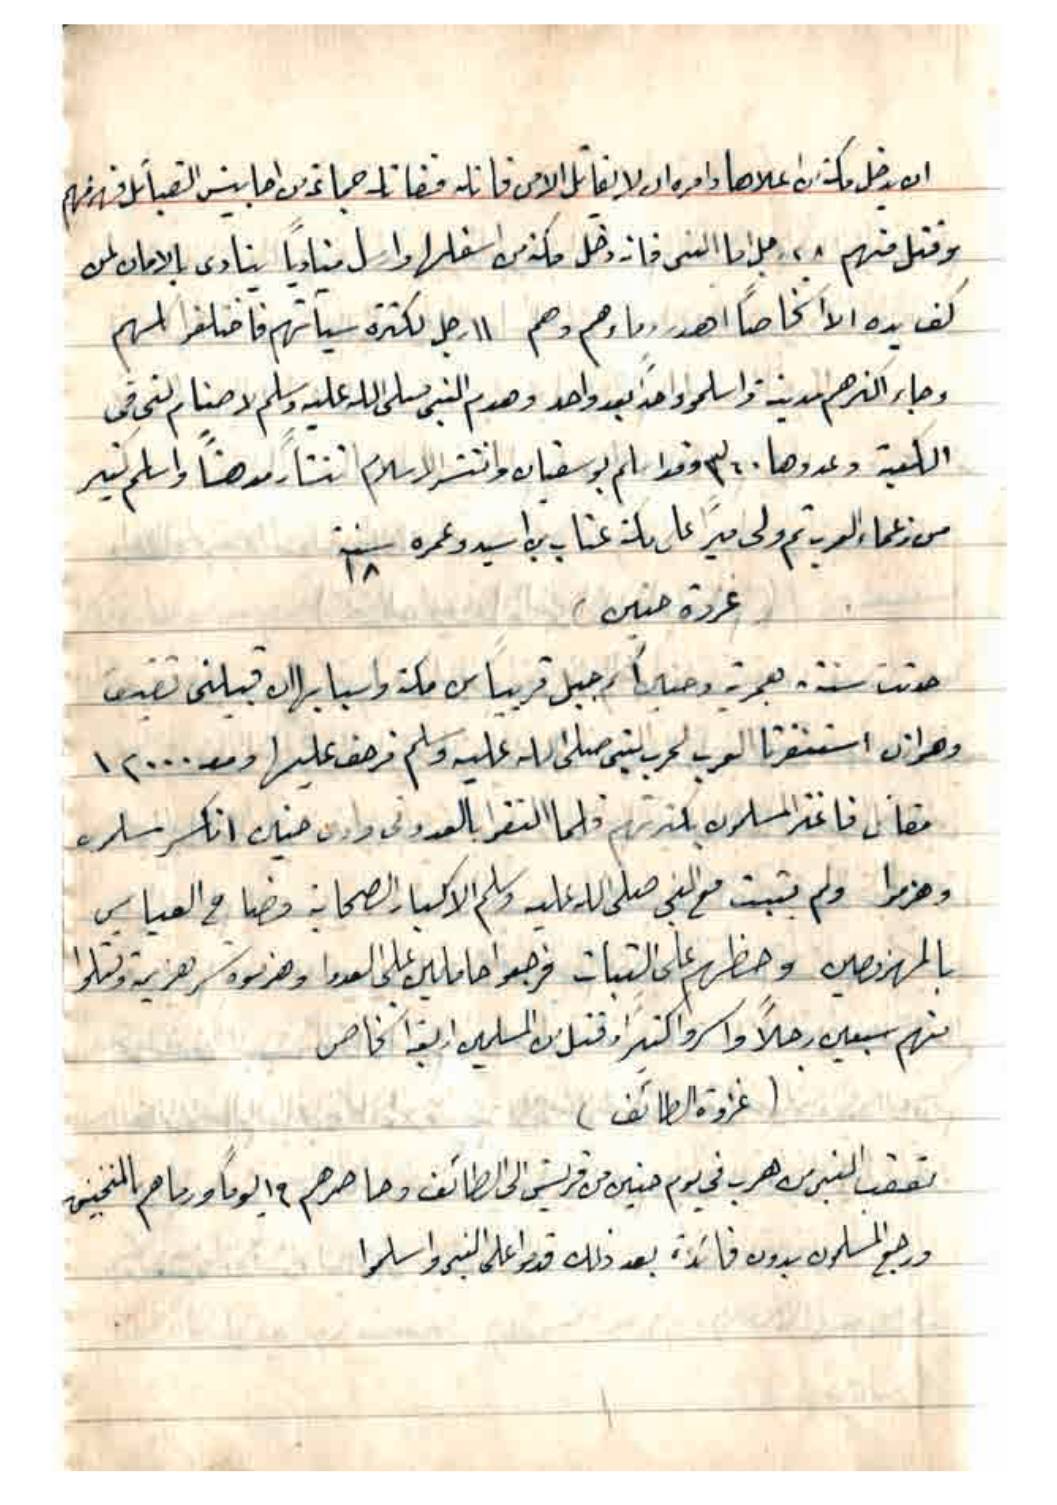 ان يدخل مكة من اعلاها وامره ان لا يقاتل الا من قاتله فقاتله جماعة من احابيش القبائل فهزمهم
وقتل منهم ٢٨ رجل اما النبي فانه دخل مكة من اسفلها وارسل منادياً ينادى بالامان لمن
كف يده الا اشخاصاً اهدر دماءهم وهم ١١ رجل لكثرة سيآتهم فاختلفوا
وجاء اكثرهم المدينة واسلموا واحداً بعد واحد وهدم النبي صلى الله عليه وسلم لاصنام التي في
الكعبة وعددها ٣٦٠ وقد اسلم بو سفيان وانتشر الاسلام انتشاراً مدهشاً واسلم كثير
من زعماء العرب ثم ولى اميراً على مكة عتاب بن اسيد وعمره سنة
١٨
( غزوة حنين )
حدثت سنة هجرية وحنين اسم جبل قريباً من مكة واسبابها ان قبيلتي ثقيف
وهوازن استنفرتا العرب لحرب النبي صلى الله عليه وسلم فزحف عليها ومعه ١٢٠٠٠
مقاتل فاغتر المسلمون بكثرتهم فلما التقوا بالعدو في وادى حنين انكسر مسلمون
وهزموا ولم يثبت مع النبي صلى الله عليه وسلم الا كبار الصحابة وصاح العباس
بالمهزومين وحظهم على الثبات فرجعوا حاملين على العدوا وهزموه شر هزيمة وقتلوا
منهم سبعين رجلاً واسروا كثيراً وقتل من المسلمين اربعة اشخاص
( غزوة الطائف )
تعقب النبي من هرب في يوم حنين من قريش الى الطائف وحاصرهم ١٩ يوماً ورماهم بالمنجنيق
ورجع المسلمون بدون فائدة بعد ذلك قدموا على النبي واسلموا